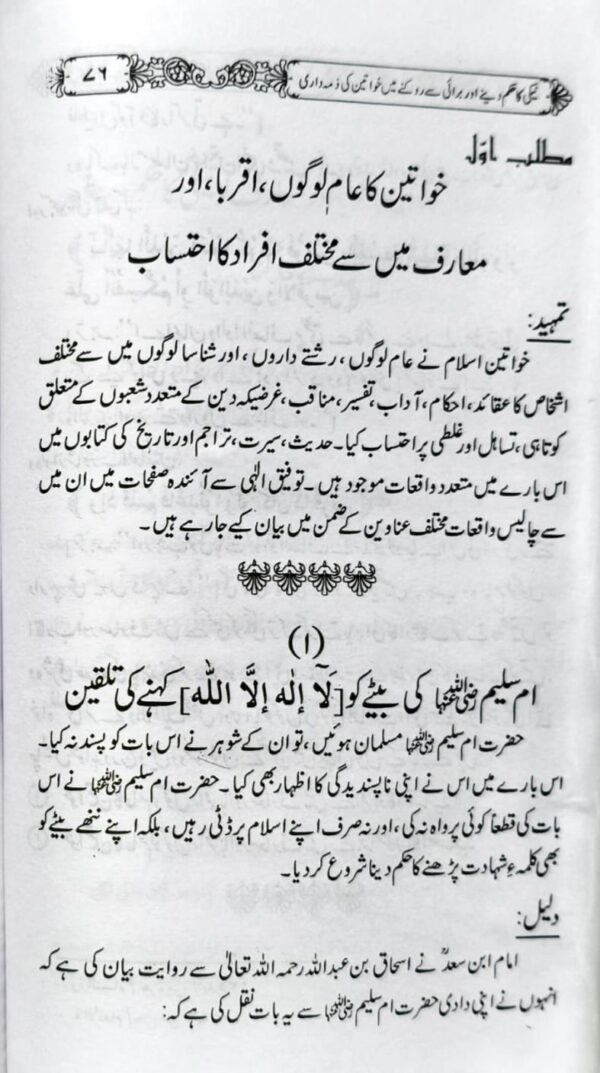 نیکی کا حکم دینے اور برائی سے روکنے میں خواتین کی ذمہ داری ۷۶
مطلب اوّل
خواتین کا عام لوگوں، اقربا، اور
معارف میں سے مختلف افراد کا احتساب
تمہید:
خواتین اسلام نے عام لوگوں، رشتے داروں، اور شناسا لوگوں میں سے مختلف
اشخاص کا عقائد، احکام، آداب، تفسیر، مناقب، غرضیکہ دین کے متعدد شعبوں کے متعلق
کوتاہی، تساہل اور غلطی پر احتساب کیا۔ حدیث، سیرت، تراجم اور تاریخ کی کتابوں میں
اس بارے میں متعدد واقعات موجود ہیں۔ توفیق الٰہی سے آئندہ صفحات میں ان میں
سے چالیس واقعات مختلف عناوین کے ضمن میں بیان کیے جا رہے ہیں۔
(۱)
ام سلیم رضی اللہ عنہا کی بیٹے کو [لَآ إِلٰهَ إِلَّا اللّٰه] کہنے کی تلقین
حضرت ام سلیم رضی اللہ عنہا مسلمان ہوئیں، تو ان کے شوہر نے اس بات کو پسند نہ کیا۔
اس بارے میں اس نے اپنی ناپسندیدگی کا اظہار بھی کیا۔ حضرت ام سلیم رضی اللہ عنہا نے اس
بات کی قطعاً کوئی پرواہ نہ کی، اور نہ صرف اپنے اسلام پر ڈٹی رہیں، بلکہ اپنے ننھے بیٹے کو
بھی کلمہءِ شہادت پڑھنے کا حکم دینا شروع کر دیا۔
دلیل:
امام ابن سعدؒ نے اسحاق بن عبداللہ رحمہ اللہ تعالیٰ سے روایت بیان کی ہے کہ
انہوں نے اپنی دادی حضرت ام سلیم رضی اللہ عنہا سے یہ بات نقل کی ہے کہ: